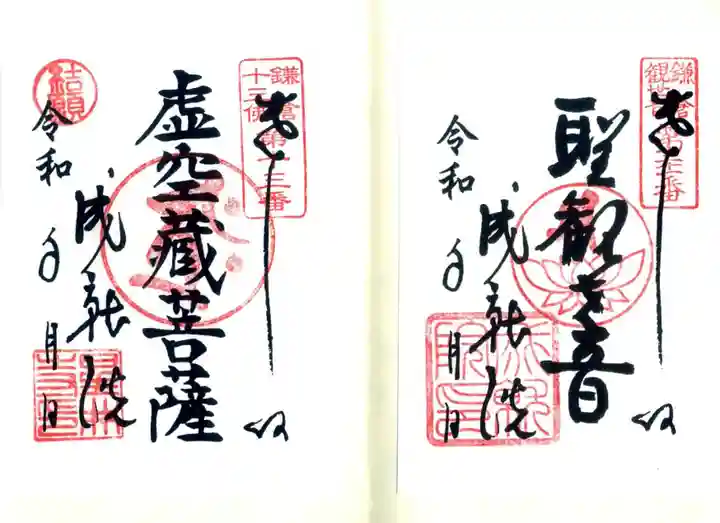 奉拝
聖観世音
成就院
令和 年 月 日
鎌倉
十三佛第十三番
奉拝
虚空蔵菩薩
成就院
令和 年 月 日
結願